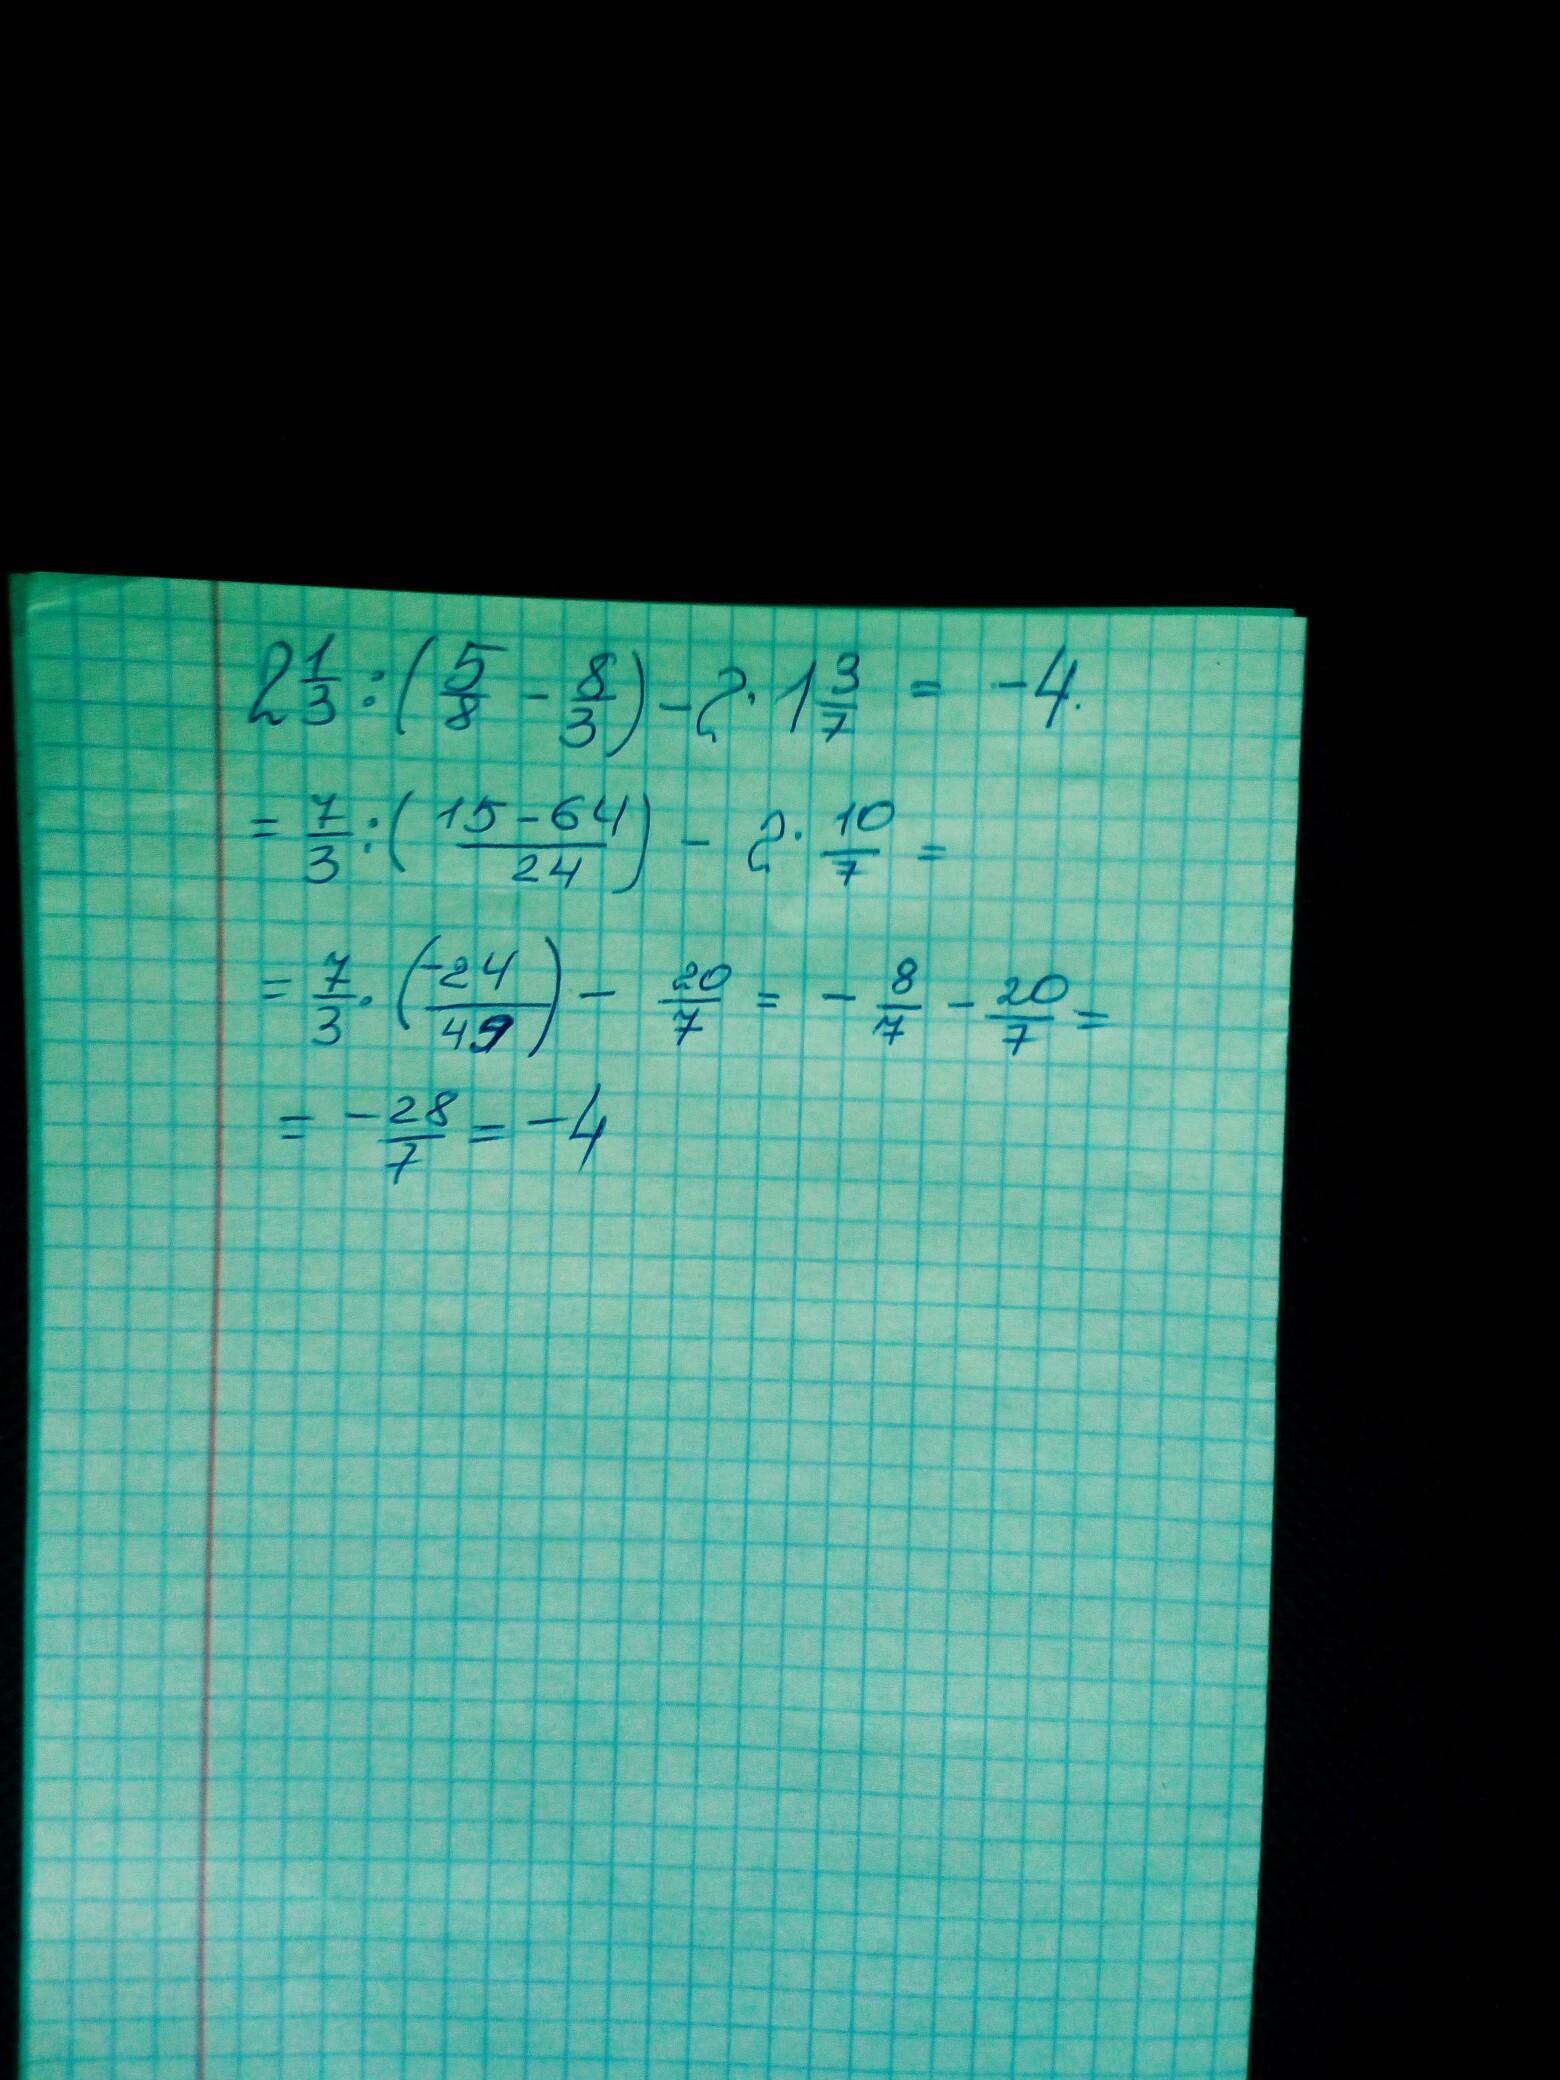 2 1/3 : (5/8 - 8/3) - 2 · 1 3/7 = -4.
= 7/3 : (15 - 64 / 24) - 2 · 10/7 =
= 7/3 · (-24/49) - 20/7 = - 8/7 - 20/7 =
= -28/7 = -4